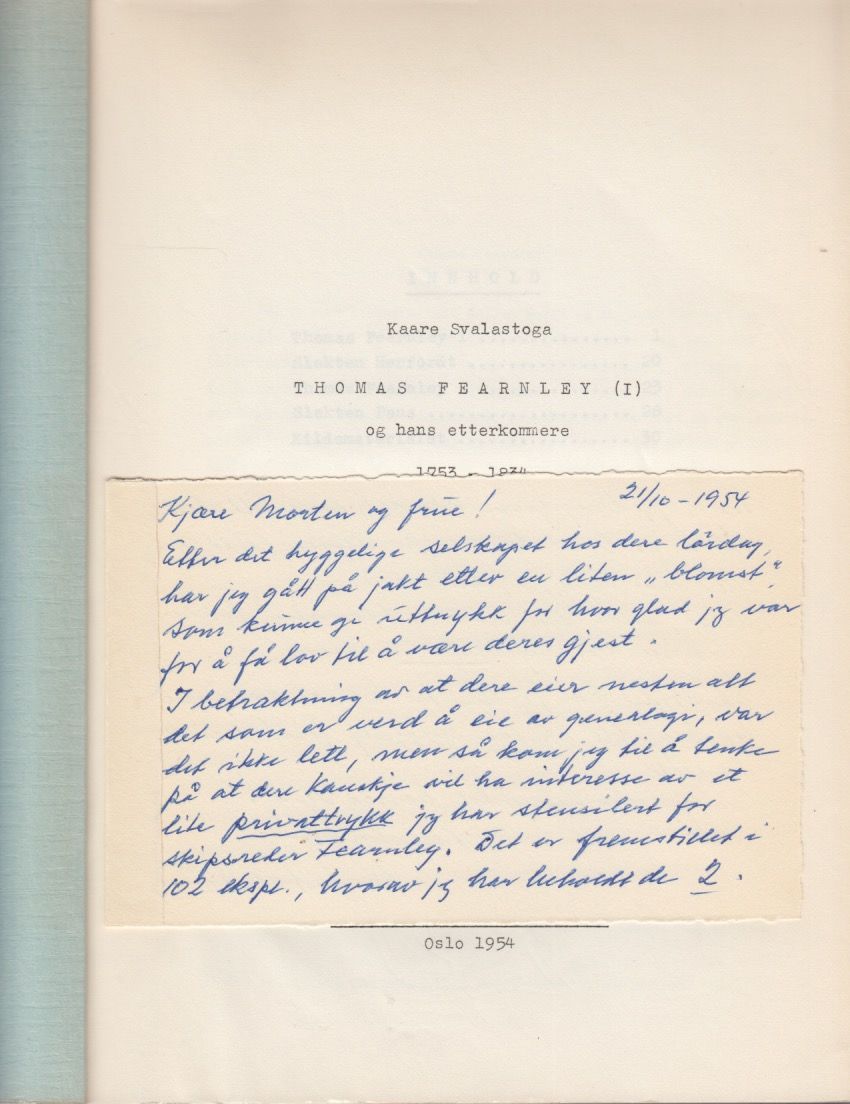 Kaare Svalastoga
THOMAS FEARNLEY (I)
og hans etterkommere
1753 - 1834
Kjære Morten og frue! 21/10-1954
Etter det hyggelige selskapet hos dere lördag,
har jeg gått på jakt etter en liten „blomst"
som kunne gi uttrykk for hvor glad jeg var
for å få lov til å være deres gjest.
I betraktning av at dere eier nesten alt
det som er verd å eie av genealogi, var
det ikke lett, men så kom jeg til å tenke
på at dere kanskje vil ha interesse av et
lite privattrykk jeg har stensilert for
skipsreder Fearnley. Det er fremstillet i
102 ekspl., hvorav jeg har beholdt de 2.
Oslo 1954